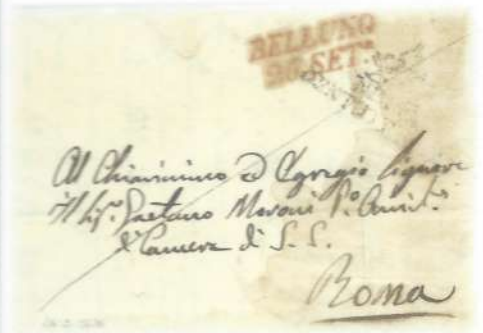 BELLUNO
26. SET.
Al Chiarissimo ed Egregio Signore
Il Sigr. Gaetano Moroni Po. Aiut.
di Camera di S. S.
Roma